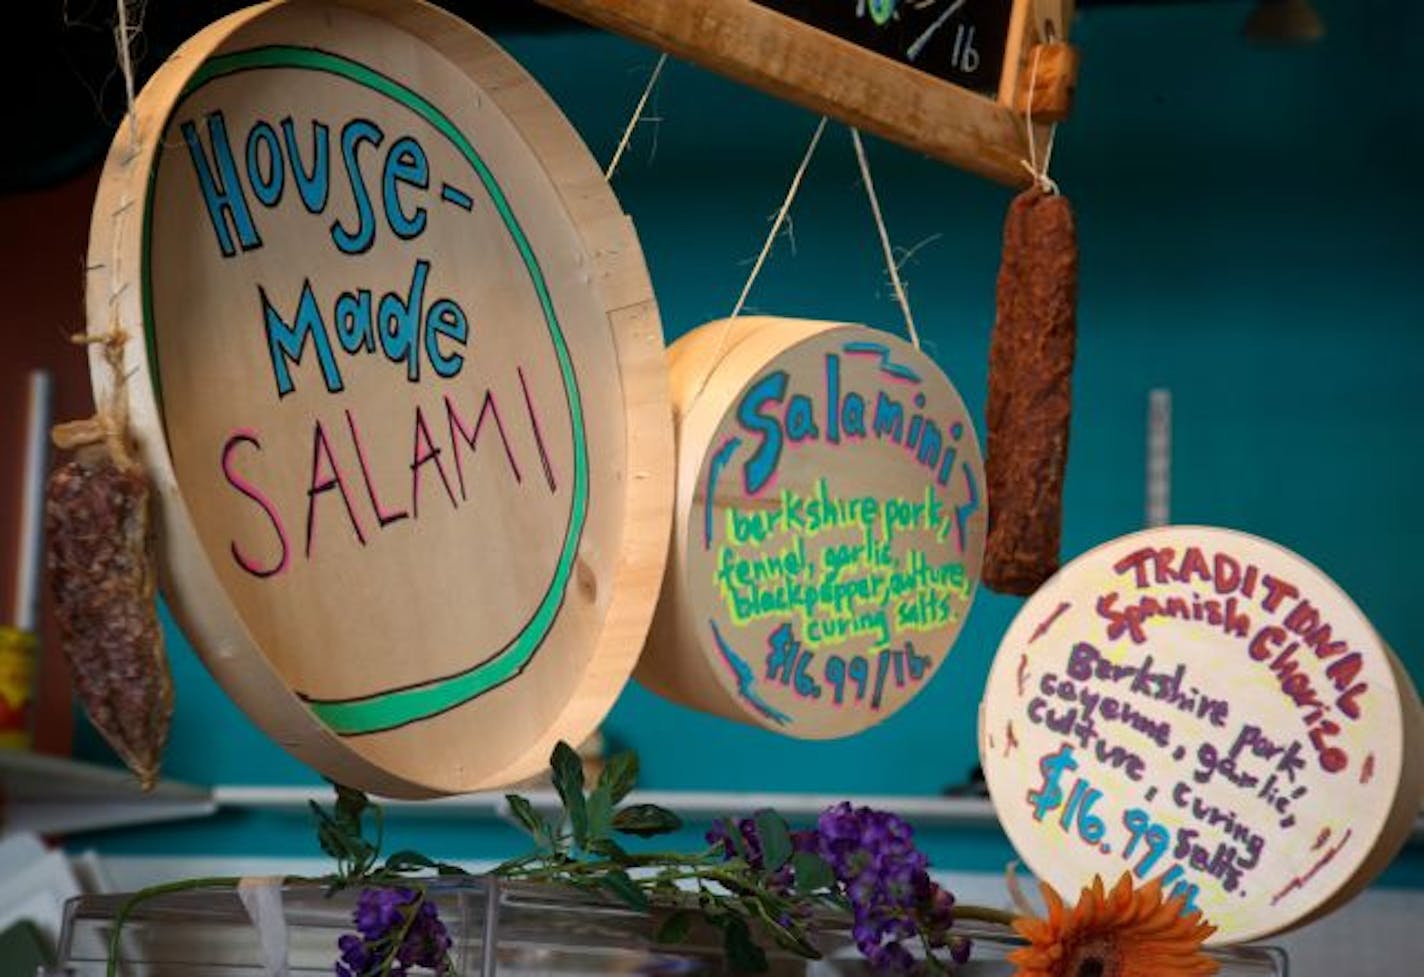 House-
Made
SALAMI
lb
Salamini
berkshire pork,
fennel, garlic,
blackpepper, culture,
curing salts.
$16.99/lb.
TRADITIONAL
Spanish Chorizo
Berkshire pork,
cayenne, garlic,
culture, curing
salts.
$16.99/lb